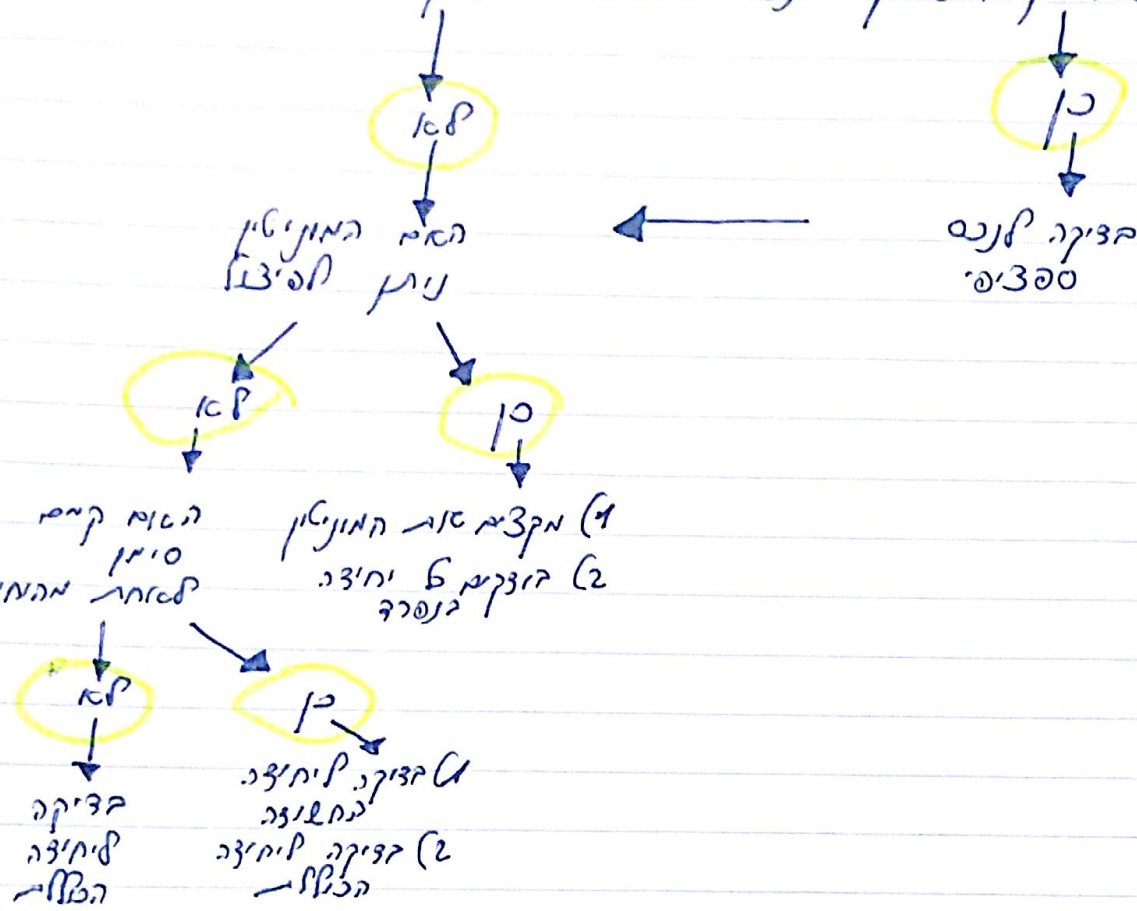 כן
לא
בדיקה לנכס
ספציפי
האם המוניטין
ניתן לפיצול
כן
לא
1) מקצים את המוניטין
2) בודקים כל יחידה
בנפרד
האם קיים
סימן
לאחת
כן
לא
1) בדיקה ליחידה
החשודה
2) בדיקה ליחידה
הכוללת
בדיקה
ליחידה
הכוללת